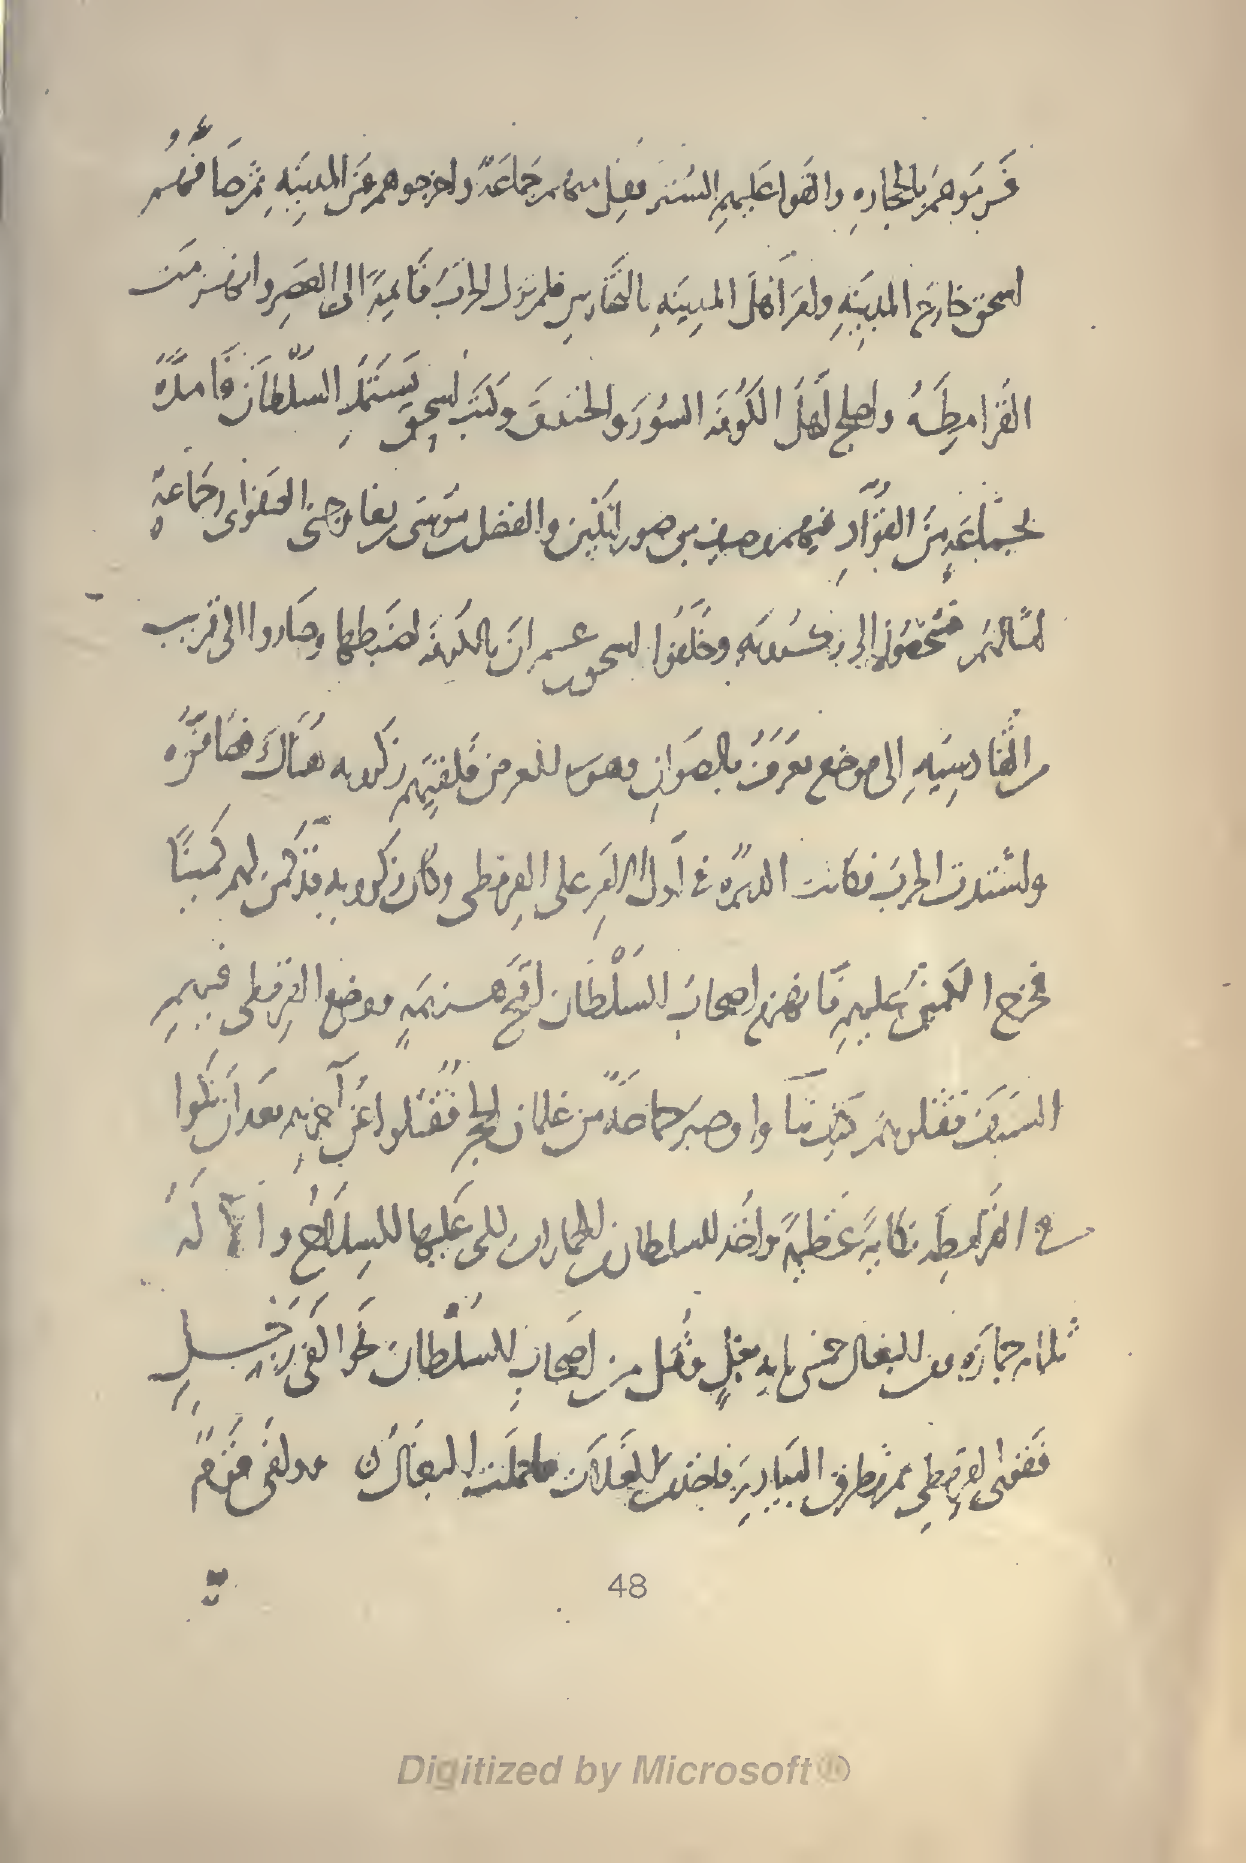 فرموهم بالحجاره والقوا عليهم الستر فقتل منهم جماعة واخرجوهم عن المدينه ثم صافهم
اسحق خارج المدينه وامر اهل المدينه بالتحارس فلم تزل الحرب قائمة الى العصر وانهزمت
القرامطه واصلح اهل الكوفه السور والخندق وكتب اسحق يستمد السلطان فامده
بجماعة من القواد فيهم وصيف بن صوراتكين والفضل بن موسى بن بغا وجنى الصفوانى وجماعة
امثالهم فشخصوا الى زكرويه وخلفوا اسحق بن عمران بالكوفه لضبطها وصاروا الى قريب
من القادسيه الى موضع يعرف بالصوان وهو فى العرض فلقيهم زكرويه هناك فصافوه
واشتدت الحرب فكانت الدبره فى اول الامر على القرمطى وكان زكرويه قد كمن لهم كمينا
فخرج الكمين عليهم فانهزم اصحاب السلطان اقبح هزيمه ووضع القرمطى فيهم
السيف فقتلوهم كيف شاوا وصبر جماعة من غلمان الحجر فقتلوا عن اخرهم بعد ان نكوا
فى القرامطه نكاية عظيمة واخذ للسلطان الجمازات التى عليها السلاح والآلة
ثلثمائه جمازه ومن البغال خمس مايه بغل وقتل من اصحاب السلطان نحو الفى رجل
فقوى القرمطى ثم تطرف البيادر فاخذ من الغلات ما حملت البغال ووافى قوم
48
Digitized by Microsoft®